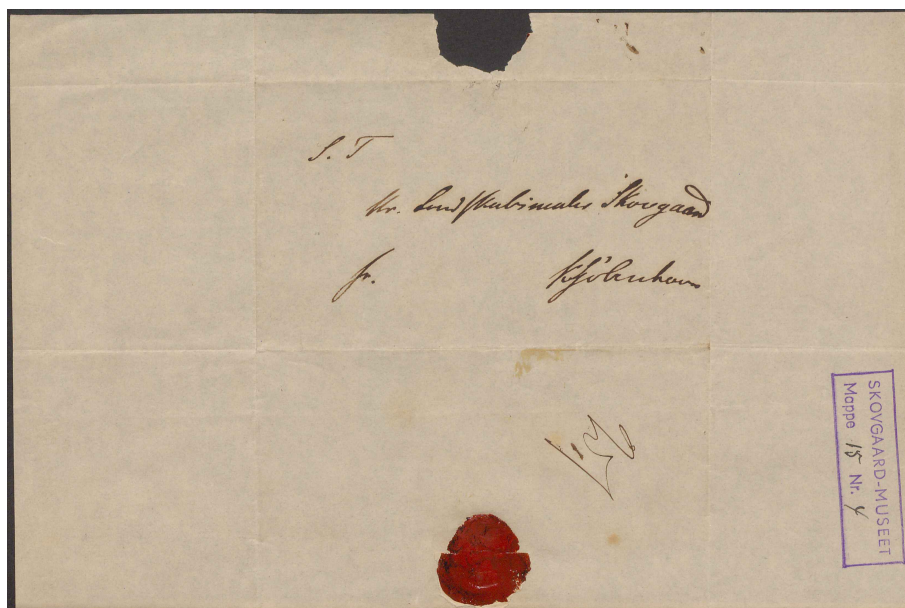 S. T
Hr. Landskabsmaler Skovgaard
fr.
Kjöbenhavn
SKOVGAARD-MUSEET
Mappe 15 Nr. 4